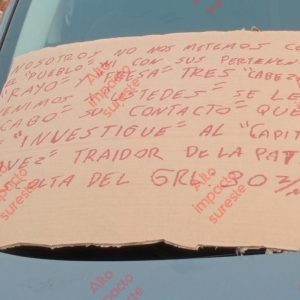 NOSOTROS NO NOS METEMOS CO
"PUEBLO" NI CON SUS PERTENEN
"RAYO" Y FRESA" TRES "CABEZ
VENIMOS USTEDES" SE LE
CABO" SU CONTACTO" QUE
E "INVESTIGUE" AL "CAPIT
VEZ" TRAIDOR DE LA PAT
COLTA DEL GRL 30
Alto
impacto
sureste
Alto
impacto
sureste
Alto
impacto
sureste
Alto
impacto
sureste